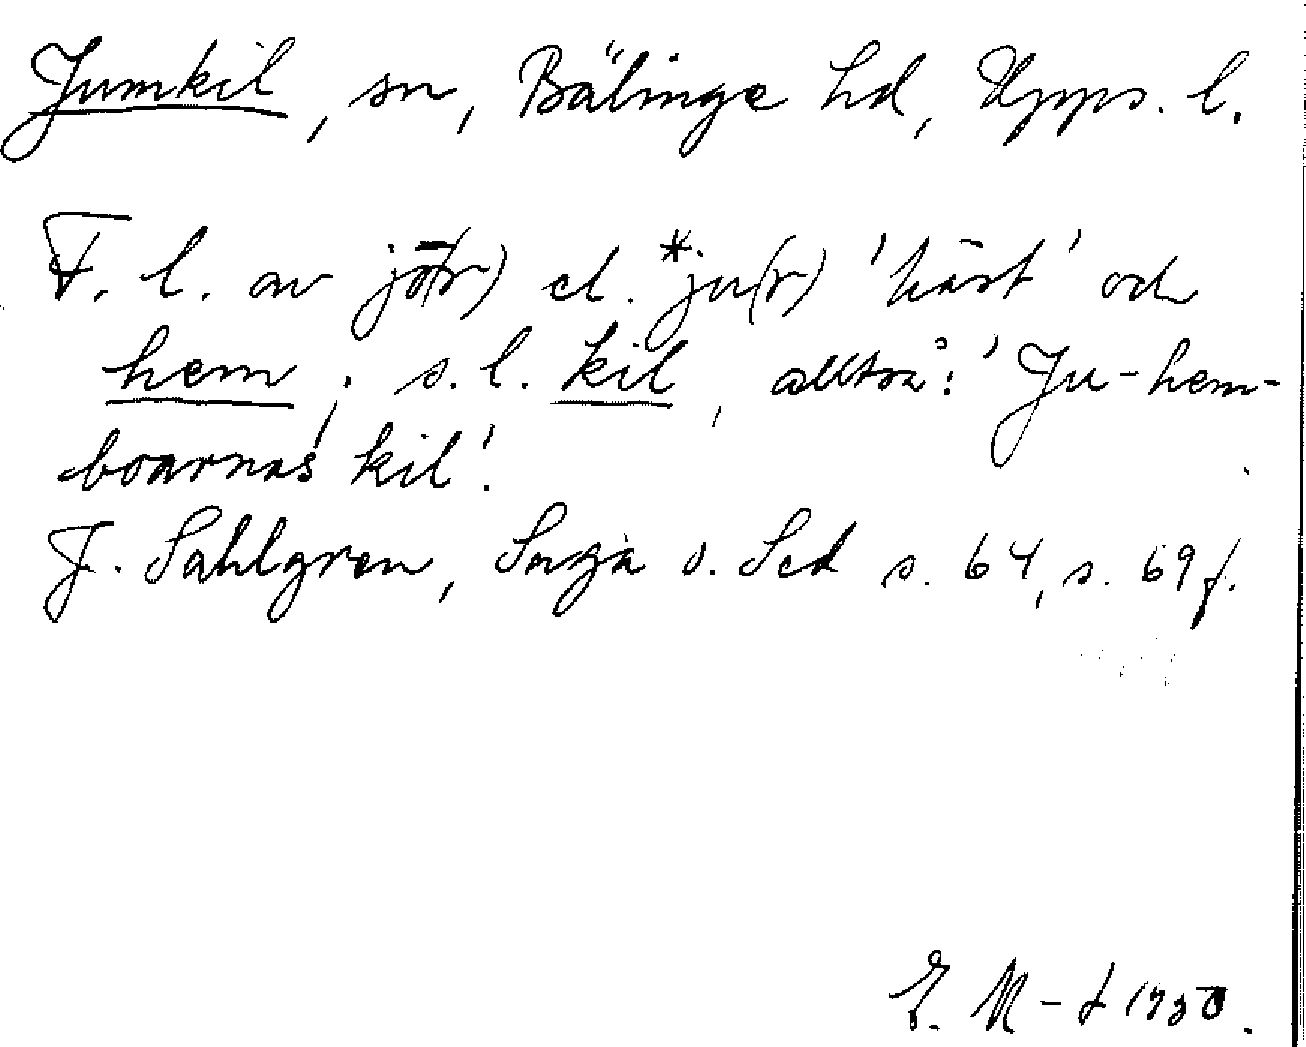 Jumkil, sn, Bälinge hd, Upps. l.
F. l. av jō(r) el. *ju(r) 'häst' och
hem; s. l. kil, alltså: 'Ju-hem-
boarnas kil'.
J. Sahlgren, Saga o. Sed s. 64, s. 69 f.
E. M-t 1950.